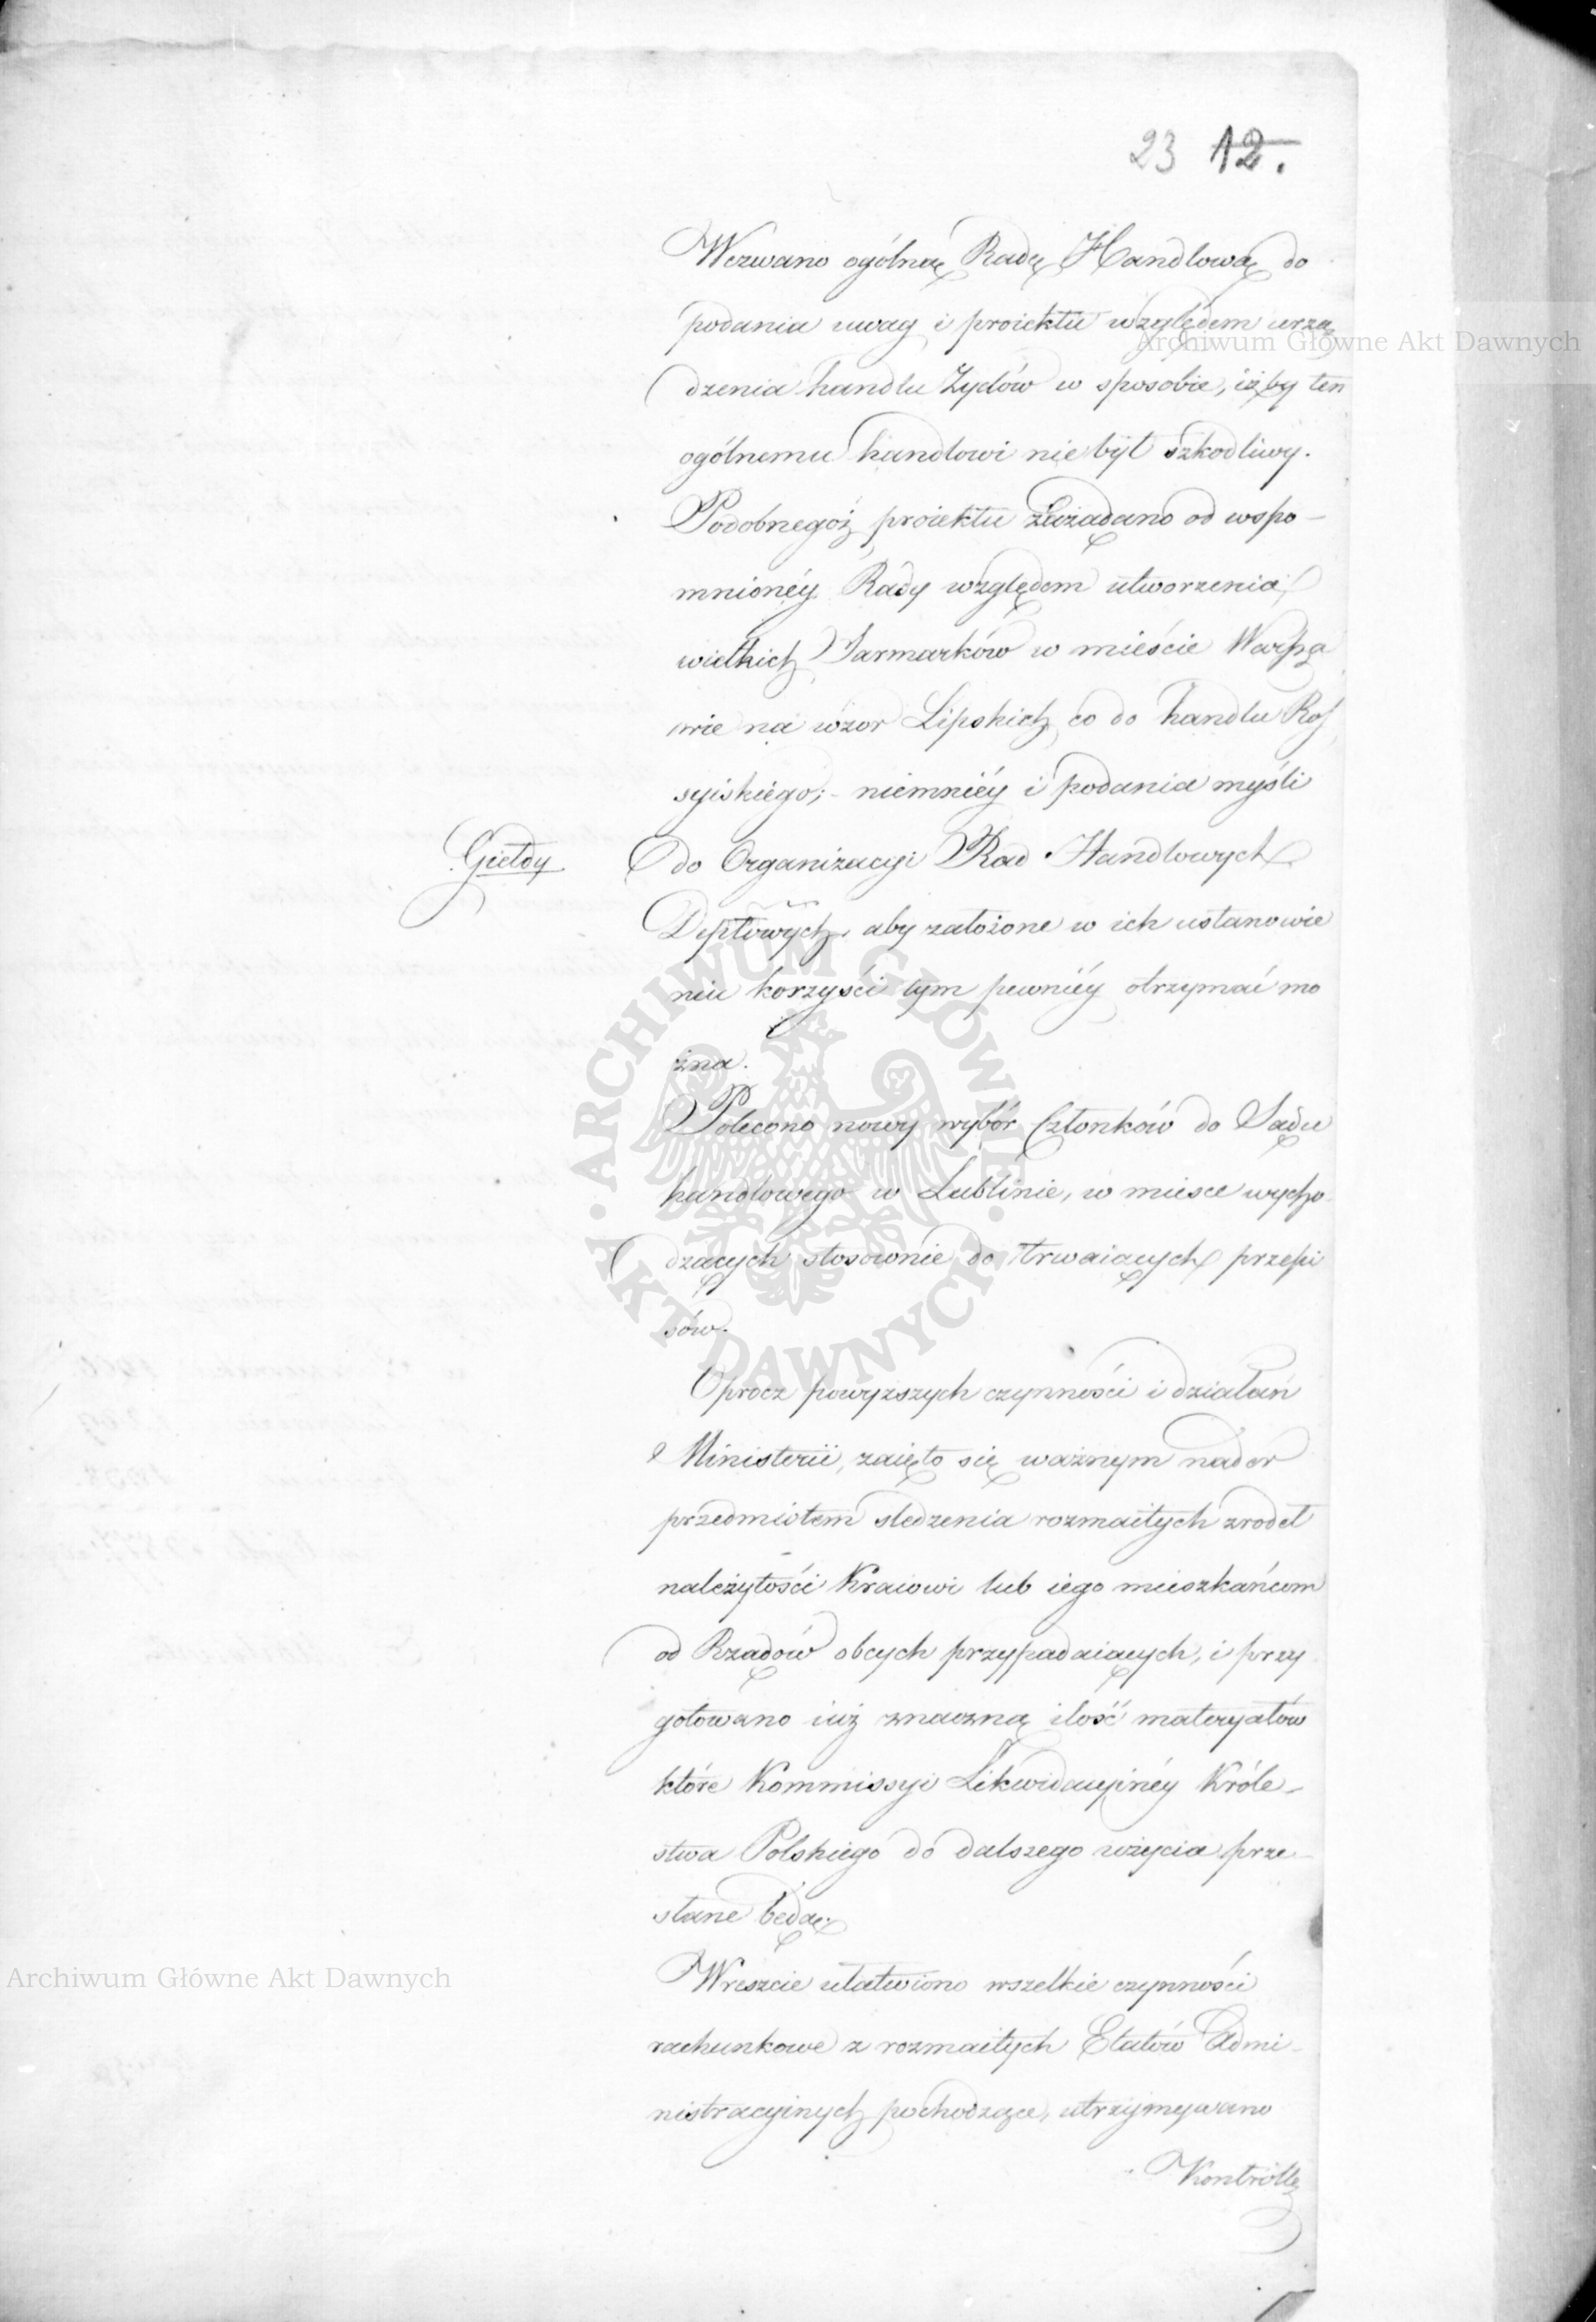 23 12.
Wezwano ogólną Radę Handlową do
podania uwag i proiektu względem urzą
dzenia handlu Zydów w sposobie, iżby ten
ogólnemu handlowi nie był szkodliwy.
Podobnegoż proiektu zażądano od wspo-
mnionéy Rady względem utworzenia
wielkich Jarmarków w mieście Warsza
wie na wzor Lipskich co do handlu Ros
syiskiego; - niemniéy i podania myśli
Giełdy
do Organizacyi Rad Handlowych
Deptowych, aby założone w ich ustanowie
niu korzyści tym pewniéy otrzymać mo
żna.
Polecono nowy wybór Członków do Sądu
handlowego w Lublinie, w miesce wycho
dzących stosownie do trwaiących przepi
sów.
Oprocz powyższych czynności i działań
Ministerii, zaięto się ważnym nader
przedmiotem sledzenia rozmaitych zrodeł
należytości Kraiowi lub iego mieszkańcom
od Rządów obcych przypadaiących, i przy
gotowano iuż znaczną ilość materyałów
które Kommissyi Likwidacyinéy Króle-
stwa Polskiego do dalszego użycia prze-
słane będą.
Wreszcie ułatwiono wszelkie czynności
rachunkowe z rozmaitych Etatów Admi-
nistracyinych pochodzące, utrzymywano
Kontrollę
Archiwum Główne Akt Dawnych
Archiwum Główne Akt Dawnych
ARCHIWUM GŁÓWNE · AKT DAWNYCH ·